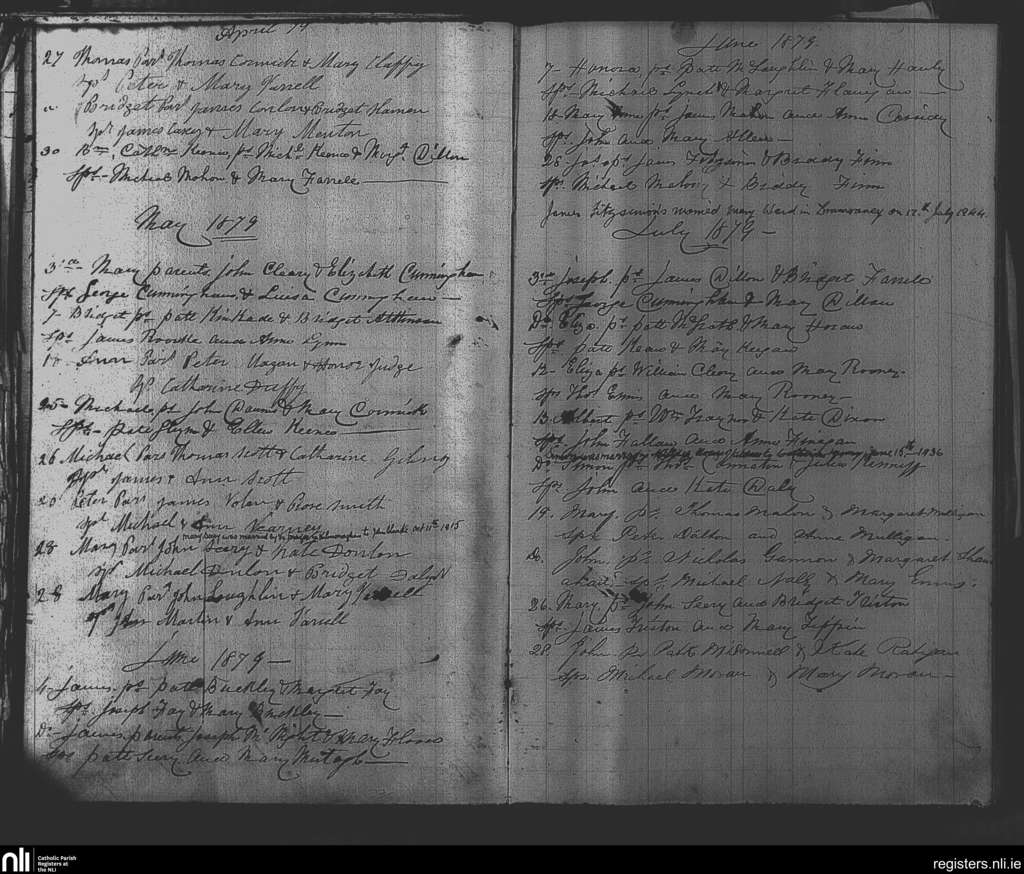 April 79
27 Thomas Par Thomas Cormick & Mary Clappy
Sp Peter & Mary Farrell
" Bridget Par James Conlon & Bridget
Sp James Casey & Mary Menton
30 Cathne Keenan, ps Michl Keenan & Margt Dillon
Sps - Micheal Mahon & Mary Farrell
May 1879
3rd Mary parents John Cleary & Elizabeth Cunningham
Sps George Cunningham & Luisa Cunningham
7 Bridget ps Patt Kinkade & Bridget Atkinson
Sps James Rourke and Anne Lynn
10 Ann Par Peter Magan & Honor Judge
Sp Catharine Duffy
25 Micheal ps John & Mary Cormick
Sps - Patt Flynn & Ellen Keenan
26 Michael Pars Thomas Scott & Catharine
Sps James & Ann Scott
20 Peter Pars James Nolan & Rose Smith
Sp Michael & Ann Kearney
Mary Seery was married by the to John Oct 11th 1915
28 Mary Par John Seery & Kate Donlon
Sp Michael Donlon & Bridget Daly
28 Mary Par John Loughlin & Mary Farrell
Sp John Martin & Ann Farrell
June 1879
4 James ps Patt Buckley & Margret Fay
Sps Joseph Fay & Mary Buckley
Do James parents Joseph & Mary
Sps Patt Seery and Mary Murtagh
June 1879.
7 - Honora, ps Patt McLaughlin & Mary Hanly
Sps - Michael Lynch & Margret Flanigan
Mary Anne ps James Maher and Anne Cassidy
Sps John and Mary Allen
28 Jas ps James Fitzsimon & Biddy Finn
Sps Micheal & Biddy Finn
James Fitzsimons married Mary Ward in on 17th July 1944
July 1879 -
3rd Joseph ps James Dillon & Bridget Farrell
Sps George Cunningham & Mary Dillon
Do Eliza ps Patt McGrath & Mary Horan
Sps Patt Keena & Mary Keegan
12 - Eliza ps William Cleary and Mary Rooney -
Sps Thos Ennis and Mary Rooney -
13 Albert ps Wm Traynor & Kate Dixon
Sps John Fallon and Anne Finagan
was married June 15th 1936
Do Simon ps Thos & Julia
Sps John and Kate Daly
19. Mary ps Thomas Malon & Margaret Mulligan
Sps Peter Dalton and Anne Mulligan.
Do. John ps Nicholas Gannon & Margaret
Sps Michael Nally & Mary Ennis.
26. Mary, ps John Seery and Bridget Friston
Sps James Friston and Mary
28. John Ps Patt McDonnell & Kate
Sps Michael Moran & Mary Moran -
nli Catholic Parish
Registers at
the NLI
registers.nli.ie